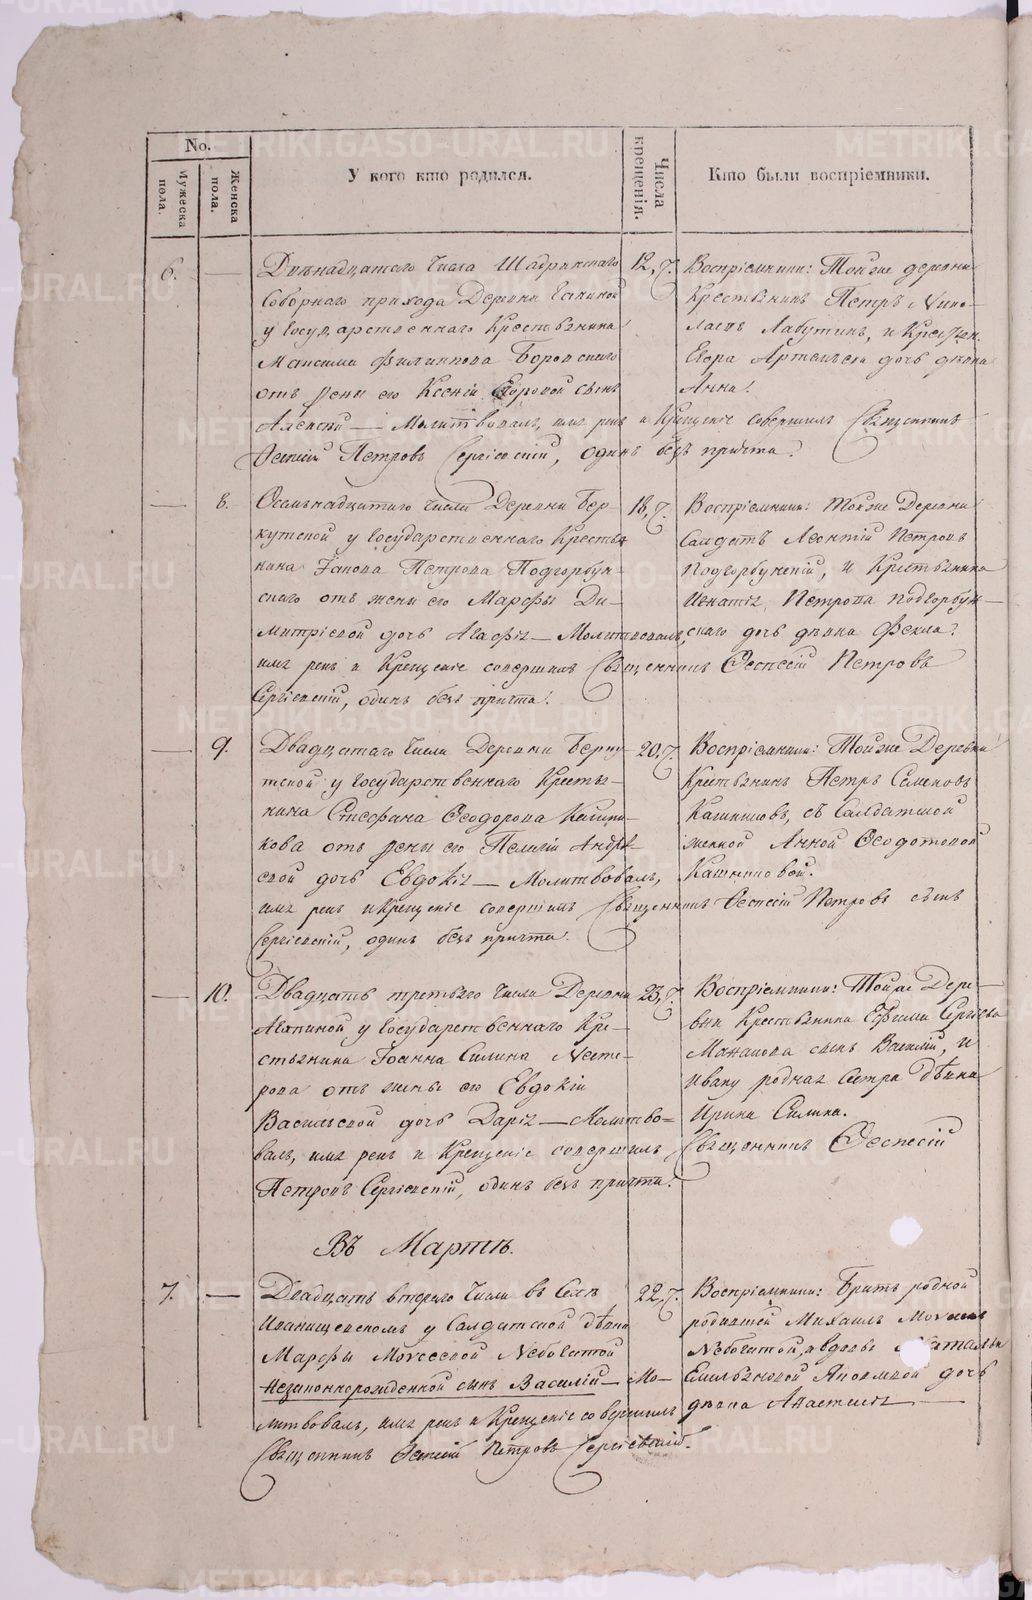 No.
Мужеска пола.
Женска пола.
У кого кто родился.
Числа крещенія.
Кто были воспріемники.
6. — Двенадцатаго числа Шадринскаго 12,
Соборнаго прихода Деревни
у Государственнаго Крестьянина
Максима Филиппова
отъ жены его Ксеніи Егоровой сынъ
Алексей — Молитвовалъ, имя рекъ и Крещеніе совершилъ Священникъ
Петровъ Сергіевскій, одинъ безъ причта.
Воспріемники: Тойже деревни
Крестьянинъ Петръ
Лабутинъ, и Крестьян.
Егора Артемьева дочь девка
Анна.
— 8. Осмьнадцатаго числа Деревни Бер- 18,
кутской у Государственнаго Крестья-
нина Іакова Петрова Подгорбун-
скаго отъ жены его Марфы Ди-
митріевой дочь Агафія — Молитвовалъ,
имя рекъ и Крещеніе совершилъ Священникъ Петровъ
Сергіевскій, одинъ безъ причта.
Воспріемники: Тойже Деревни
Салдатъ Леонтій Петровъ
Подгорбунскій, и Крестьянина
Игнатія Петрова Подгорбун-
скаго дочь девка Фекла.
— 9. Двадцатаго числа Деревни Берку- 20,
тской у Государственнаго Кресть-
янина Стефана Ѳеодорова
кова отъ жены его Пелагіи Андре-
евой дочь Евдокія — Молитвовалъ,
имя рекъ и Крещеніе совершилъ Священникъ Петровъ сынъ
Сергіевскій, одинъ безъ причта.
Воспріемники: Тойже Деревни
Крестьянинъ Петръ Семеновъ
съ Салдатской
женкой Анной Ѳеодотовой
10. Двадцать третьяго числа Деревни 23,
у Государственнаго Кре-
стьянина Іоанна Силина Несте-
рова отъ жены его Евдокіи
Васильевой дочь Дарія — Молитво-
валъ, имя рекъ и Крещеніе совершилъ Священникъ
Петровъ Сергіевскій, одинъ безъ причта.
Воспріемники: Тойже Дере-
вни Крестьянина Ефима Сергіева
сынъ Василій, и
Ивану родная сестра девка
Ирина Силина.
Въ Марте.
7. — Двадцать втораго числа въ Селе 22,
Иванищевскомъ у Салдатской девки
Марфы Моисеевой Небогатой
Незаконнорожденной сынъ Василій — Мо-
литвовалъ, имя рекъ и Крещеніе совершилъ
Священникъ Петровъ Сергіевскій.
Воспріемники: Братъ родной
родившей Михаилъ Моисеевъ
Небогатой, и вдовы Натальи
Емильяновой дочь
девка Анастасія —
METRIKI.GASO-URAL.RU